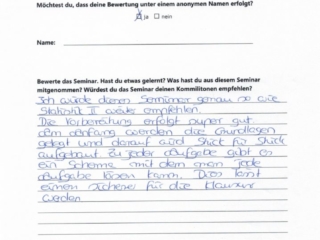 Möchtest du, dass deine Bewertung unter einem anonymen Namen erfolgt?
ja nein
Name:
Bewerte das Seminar. Hast du etwas gelernt? Was hast du aus diesem Seminar
mitgenommen? Würdest du das Seminar deinen Kommilitonen empfehlen?
Ich würde dieses Seminar genau so wie
Statistik II weiter empfehlen.
Die Vorbereitung erfolgt super gut.
Am Anfang werden die Grundlagen
gelegt und darauf wird Stück für Stück
aufgebaut. Zu jeder Aufgabe gibt es
ein Schema mit dem man jede
Aufgabe lösen kann. Dies lässt
einen sicherer für die Klausur
werden